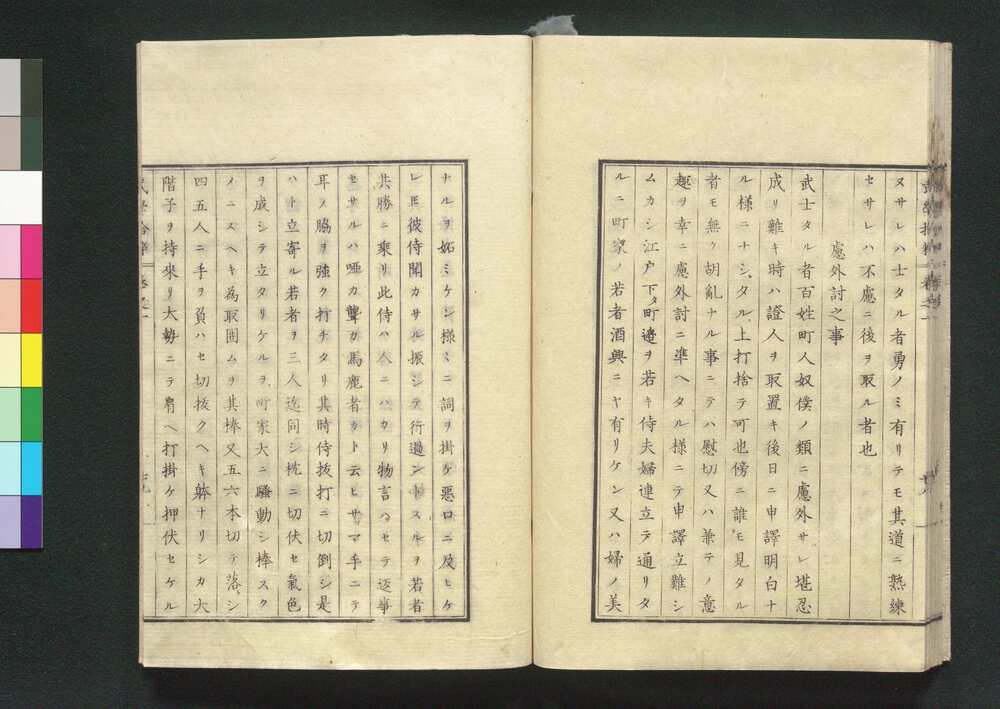 ヌサレハ士タル者勇ノミ有リテモ其道ニ熟練
セサレハ不慮ニ後ヲ取ル者也
慮外討之事
武士タル者百姓町人奴僕ノ類ニ慮外サレ堪忍
成リ難キ時ハ證人ヲ取置キ後日ニ申譯明白ナ
ル様ニナシタル上打捨テ可也傍ニ誰モ見タル
者モ無ク胡亂ナル事ニテハ慰切又ハ兼テノ意
趣ヲ幸ニ慮外討ニ準ヘタル様ニテ申譯立難シ
ムカシ江戸下タ町邊ヲ若キ侍夫婦連立テ通リタ
ルニ町家ノ若者酒興ニヤ有リケン又ハ婦ノ美
ナルヲ妬ミケン様ミニ詞ヲ掛ケ惡口ニ及ヒケ
レ𪜈彼侍聞カサル振シテ行過ントスルヲ若者
共勝ニ乘リ此侍ハ人ニハカリ物言ハセテ返事
セサルハ啞カ聾カ馬鹿者カト云ヒサマ手ニテ
耳ノ脇ヲ強ク打チタリ其時侍抜打ニ切倒シ是
ハト立寄ル若者ヲ三人迄同シ枕ニ切伏セ氣色
ヲ成シテ立タリケルヲ町家大ニ騷動シ棒スク
メニスヘキ為取囲ムヲ其棒又五六本切テ落シ
四五人ニ手ヲ負ハセ切抜クヘキ躰ナリシカ大
階子ヲ持來リ大勢ニテ肩ヘ打掛ケ押伏セケル